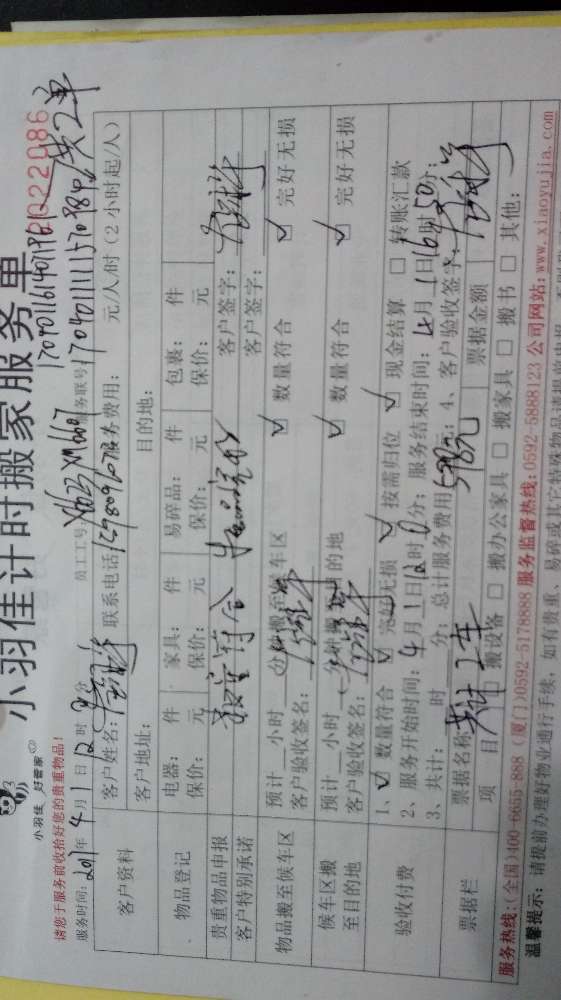 小羽佳 好管家
小羽佳计时搬家服务单
022086
请您于服务前收拾好您的贵重物品!
服务时间: 2017年 4月 1日 12时 分 员工工号: 服务联号:
共2单
客户资料
客户姓名: 联系电话: 服务费用: 元/人/时 (2小时起/人)
客户地址: 目的地:
物品登记
电器: 件 家具: 件 易碎品: 件 包裹: 件
保价: 元 保价: 元 保价: 元 保价: 元
贵重物品申报
客户特别承诺
数量符合 物品完好
客户签字:
客户签字:
物品搬至候车区
预计 小时 分钟搬至候车区 ☑ 数量符合 ☑ 完好无损
客户验收签名:
候车区搬至目的地
预计 小时 分钟搬 目的地 ☑ 数量符合 ☑ 完好无损
客户验收签名:
验收付费
1、☑ 数量符合 ☑ 完好无损 ☑ 按需归位 ☑ 现金结算 □ 转账汇款
2、服务开始时间: 4月 1日 12时 0分; 服务结束时间: 4月 1日 16时 50分;
3、共计: 时 分; 总计服务费用 元; 4、客户验收签字:
票据栏
票据名称 共计 2车 598元 票据金额
项 目 □ 搬设备 □ 搬办公家具 □ 搬家具 □ 搬书 □ 其他:
服务热线:(全国)400-6655-888 (厦门)0592-5178888 服务监督热线:0592-5888123 公司网站:www.xiaoyujia.com
温馨提示: 请提前办理好物业通行手续, 如有贵重、易碎或其它特殊物品请提前申报